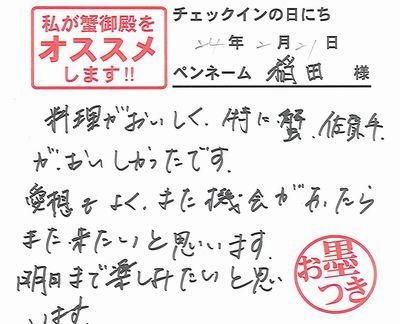 私が蟹御殿を
オススメ
します!!
チェックインの日にち
24年2月21日
ペンネーム 稲田 様
料理がおいしく、特に蟹、佐賀牛
が、おいしかったです。
愛想もよく、また機会があったら
また来たいと思います。
明日まで楽しみたいと思い
います。
お墨つき